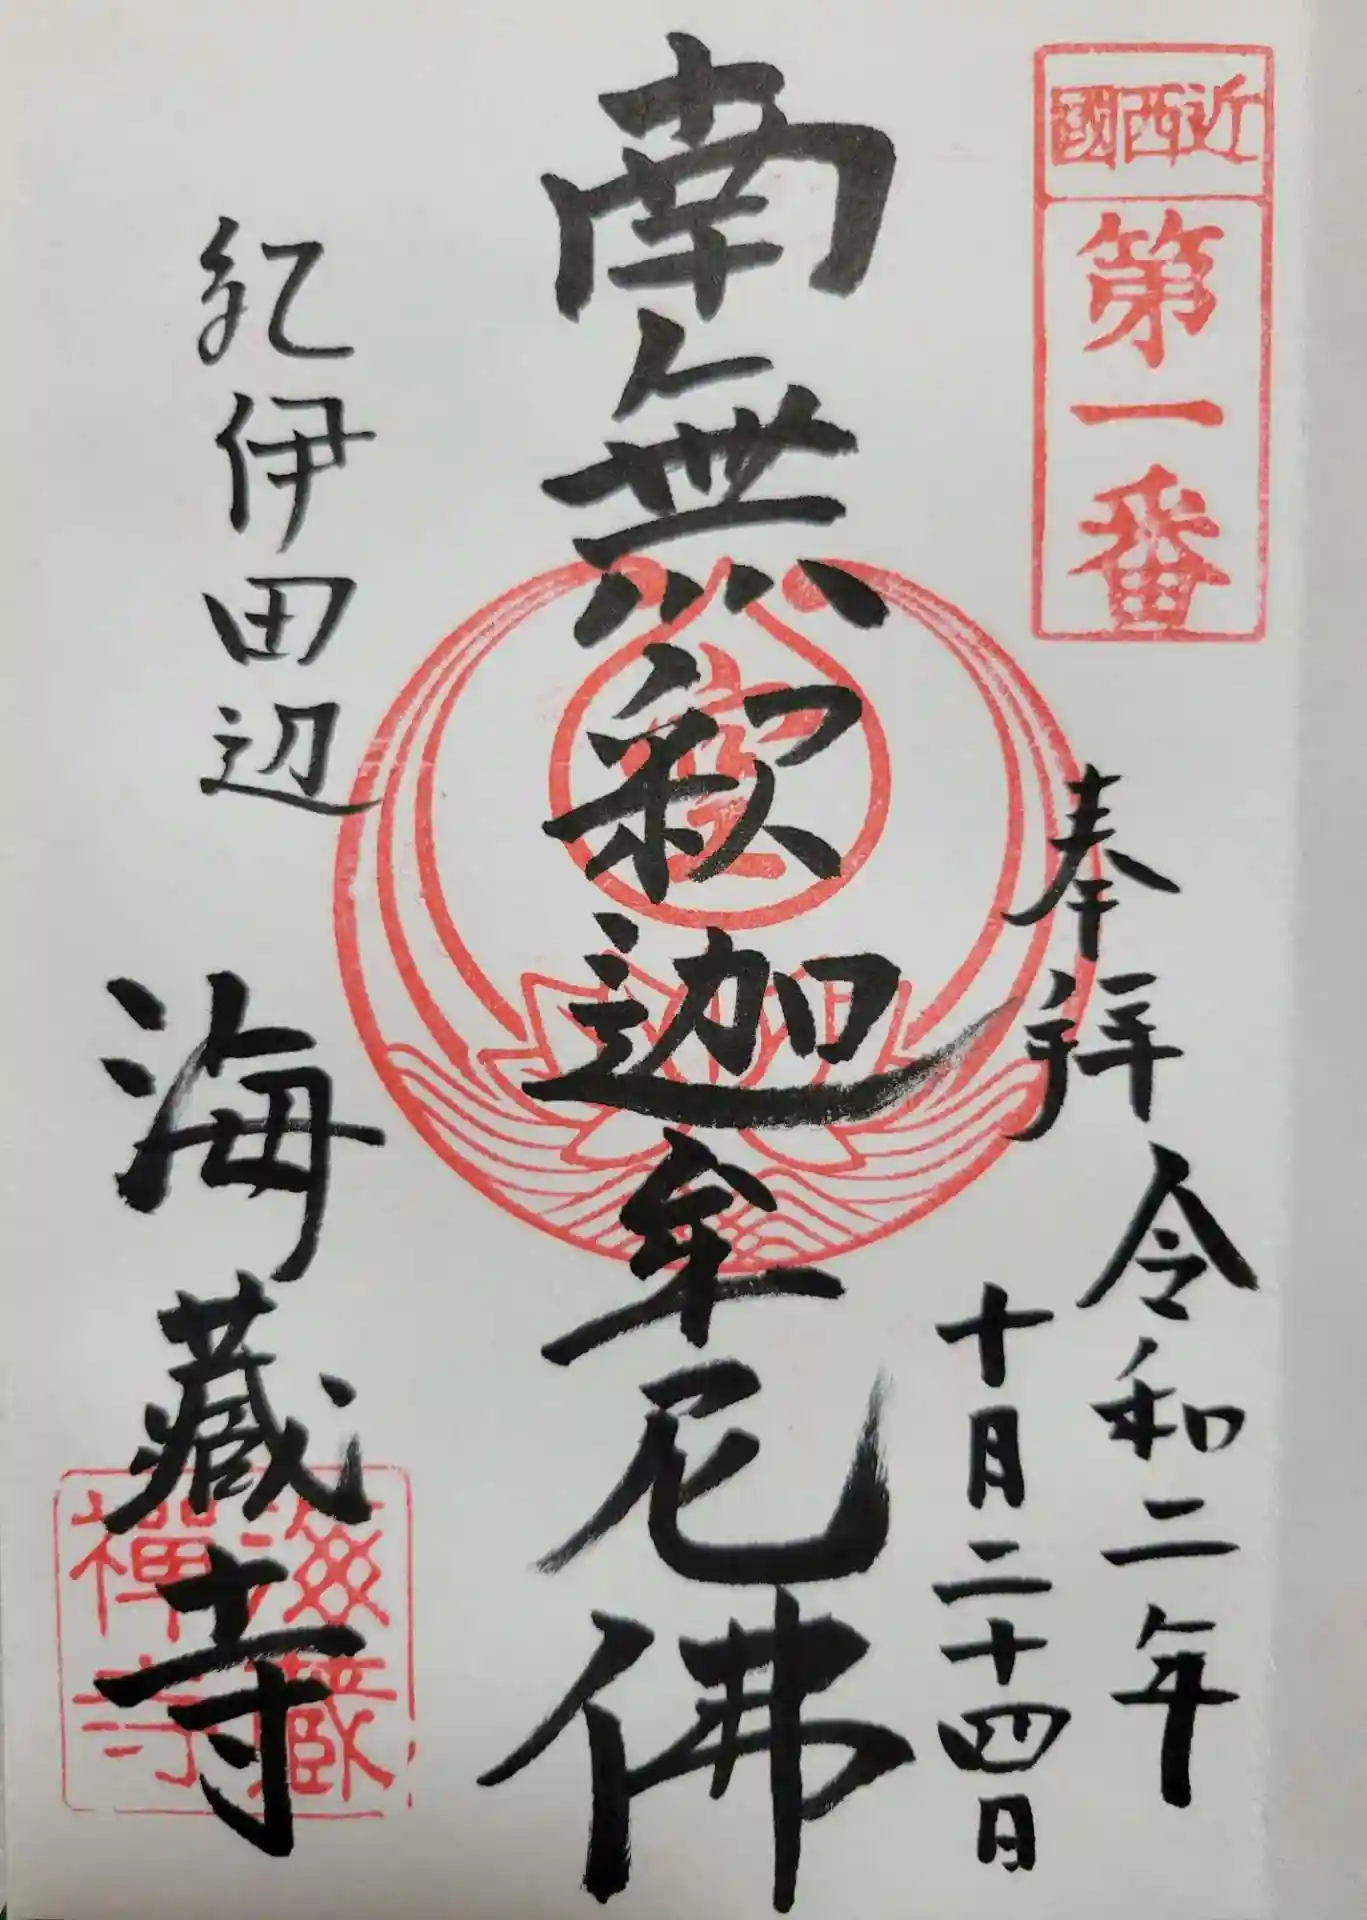 近西国
第一番
奉拝
令和二年
十月二十四日
南無釈迦牟尼佛
紀伊田辺
海蔵寺
海蔵
禅寺